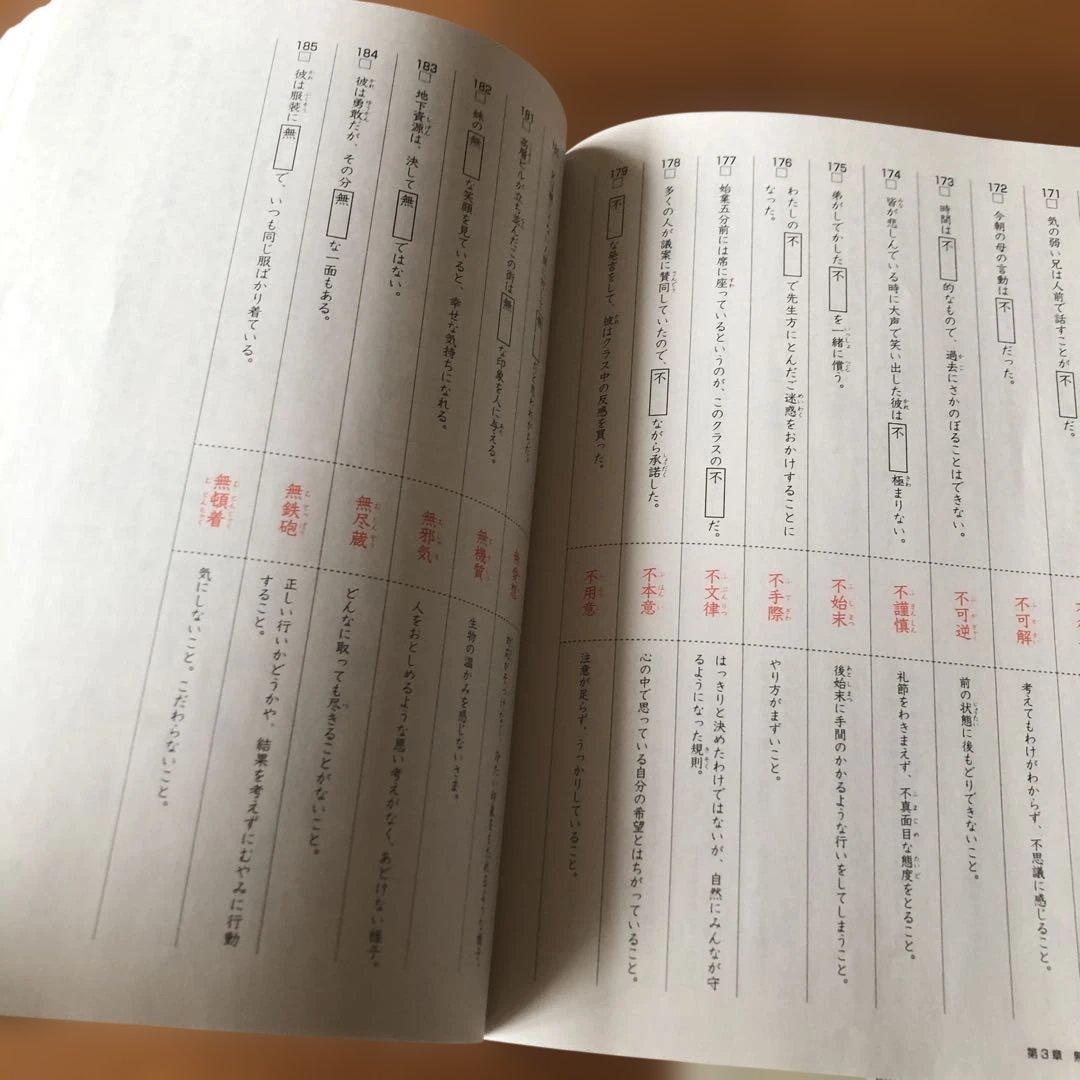 171
気の弱い兄は人前で話すことが不だ。
172
今朝の母の言動は不だった。
不可解
考えてもわけがわからず、不思議に感じること。
173
時間は不的なもので、過去にさかのぼることはできない。
不可逆
前の状態に後もどりできないこと。
174
皆が悲しんでいる時に大声で笑い出した彼は不極まりない。
不謹慎
礼節をわきまえず、不真面目な態度をとること。
175
弟がしでかした不を一緒に償う。
不始末
後始末に手間のかかるような行いをしてしまうこと。
176
わたしの不で先生方にとんだご迷惑をおかけすることに
なった。
不手際
やり方がまずいこと。
177
始業五分前には席に座っているというのが、このクラスの不だ。
不文律
はっきりと決めたわけではないが、自然にみんなが守
るようになった規則。
178
多くの人が議案に賛同していたので、不ながら承諾した。
不本意
心の中で思っている自分の希望とはちがっていること。
179
不な発言をして、彼はクラス中の反感を買った。
不用意
注意が足らず、うっかりしていること。
第3章
181
高層ビルが立ち並んだこの街は無な印象を人に与える。
無機質
生物の温かみを感じないさま。
182
妹の無な笑顔を見ていると、幸せな気持ちになれる。
無邪気
人をおとしめるような悪い考えがなく、あどけない様子。
183
地下資源は、決して無ではない。
無尽蔵
どんなに取っても尽きることがないこと。
184
彼は勇敢だが、その分無な一面もある。
無鉄砲
正しい行いかどうかや、結果を考えずにむやみに行動
すること。
185
彼は服装に無で、いつも同じ服ばかり着ている。
無頓着
気にしないこと。こだわらないこと。